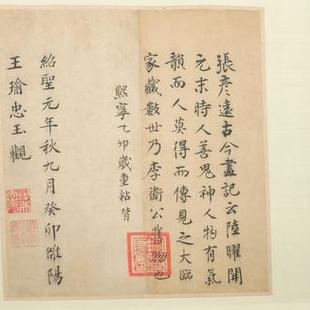 張彦遠古今畫記云陸曜開
元末時人善鬼神人物有氣
韻而人莫得而傳見之大臨
家藏數世乃李衛公舊物也
熙寧乙卯歲重粘背
紹聖元年秋九月癸卯雒陽
王瑜忠玉觀